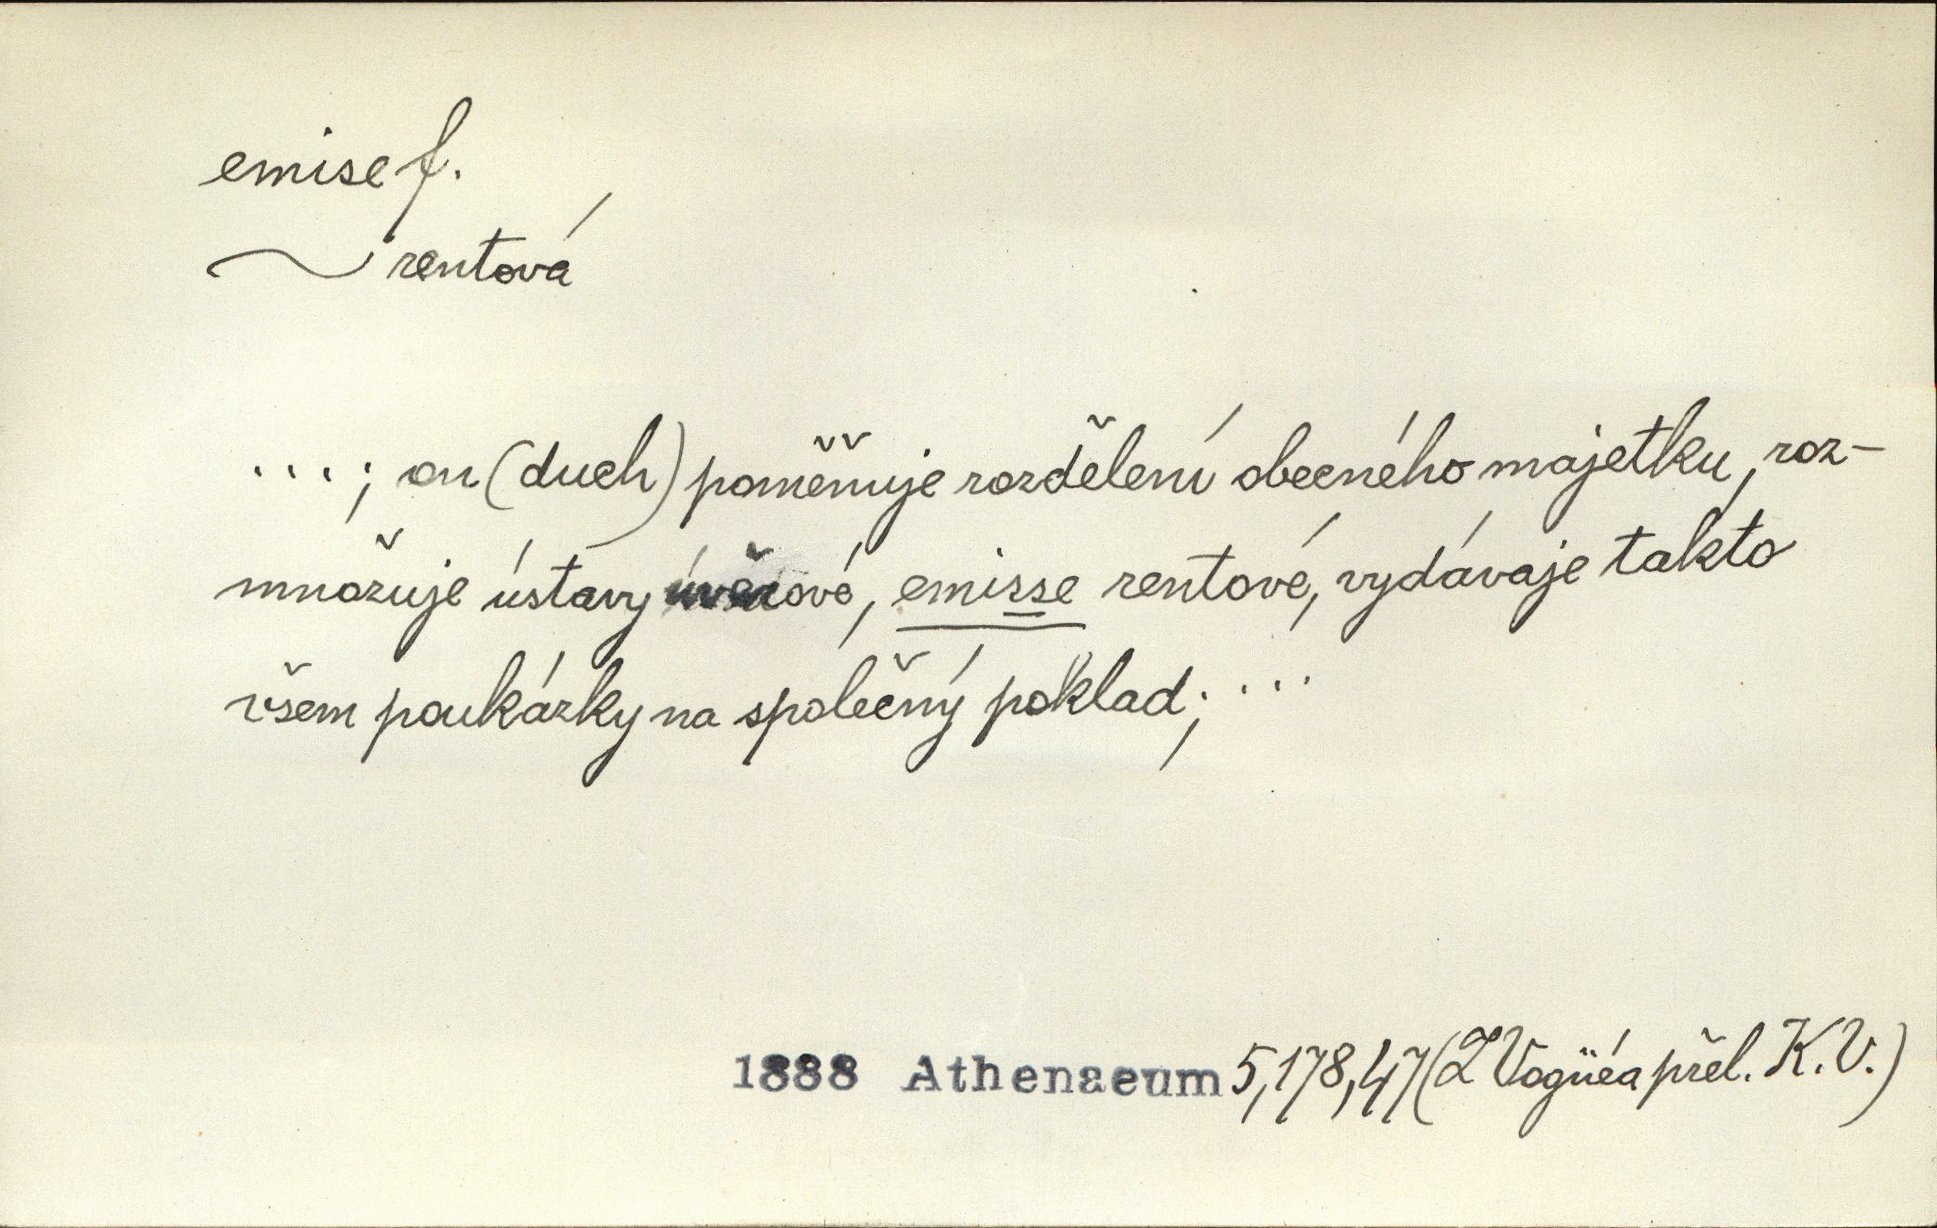 emise f.
~ rentová
...; on (duch) poměňuje rozdělení obecného majetku, roz-
množuje ústavy úvěrové, emisse rentové, vydávaje takto
všem poukázky na společný poklad; ...
1888 Athenaeum 5,178,47 (Z Vogüéa přel. K. V.)